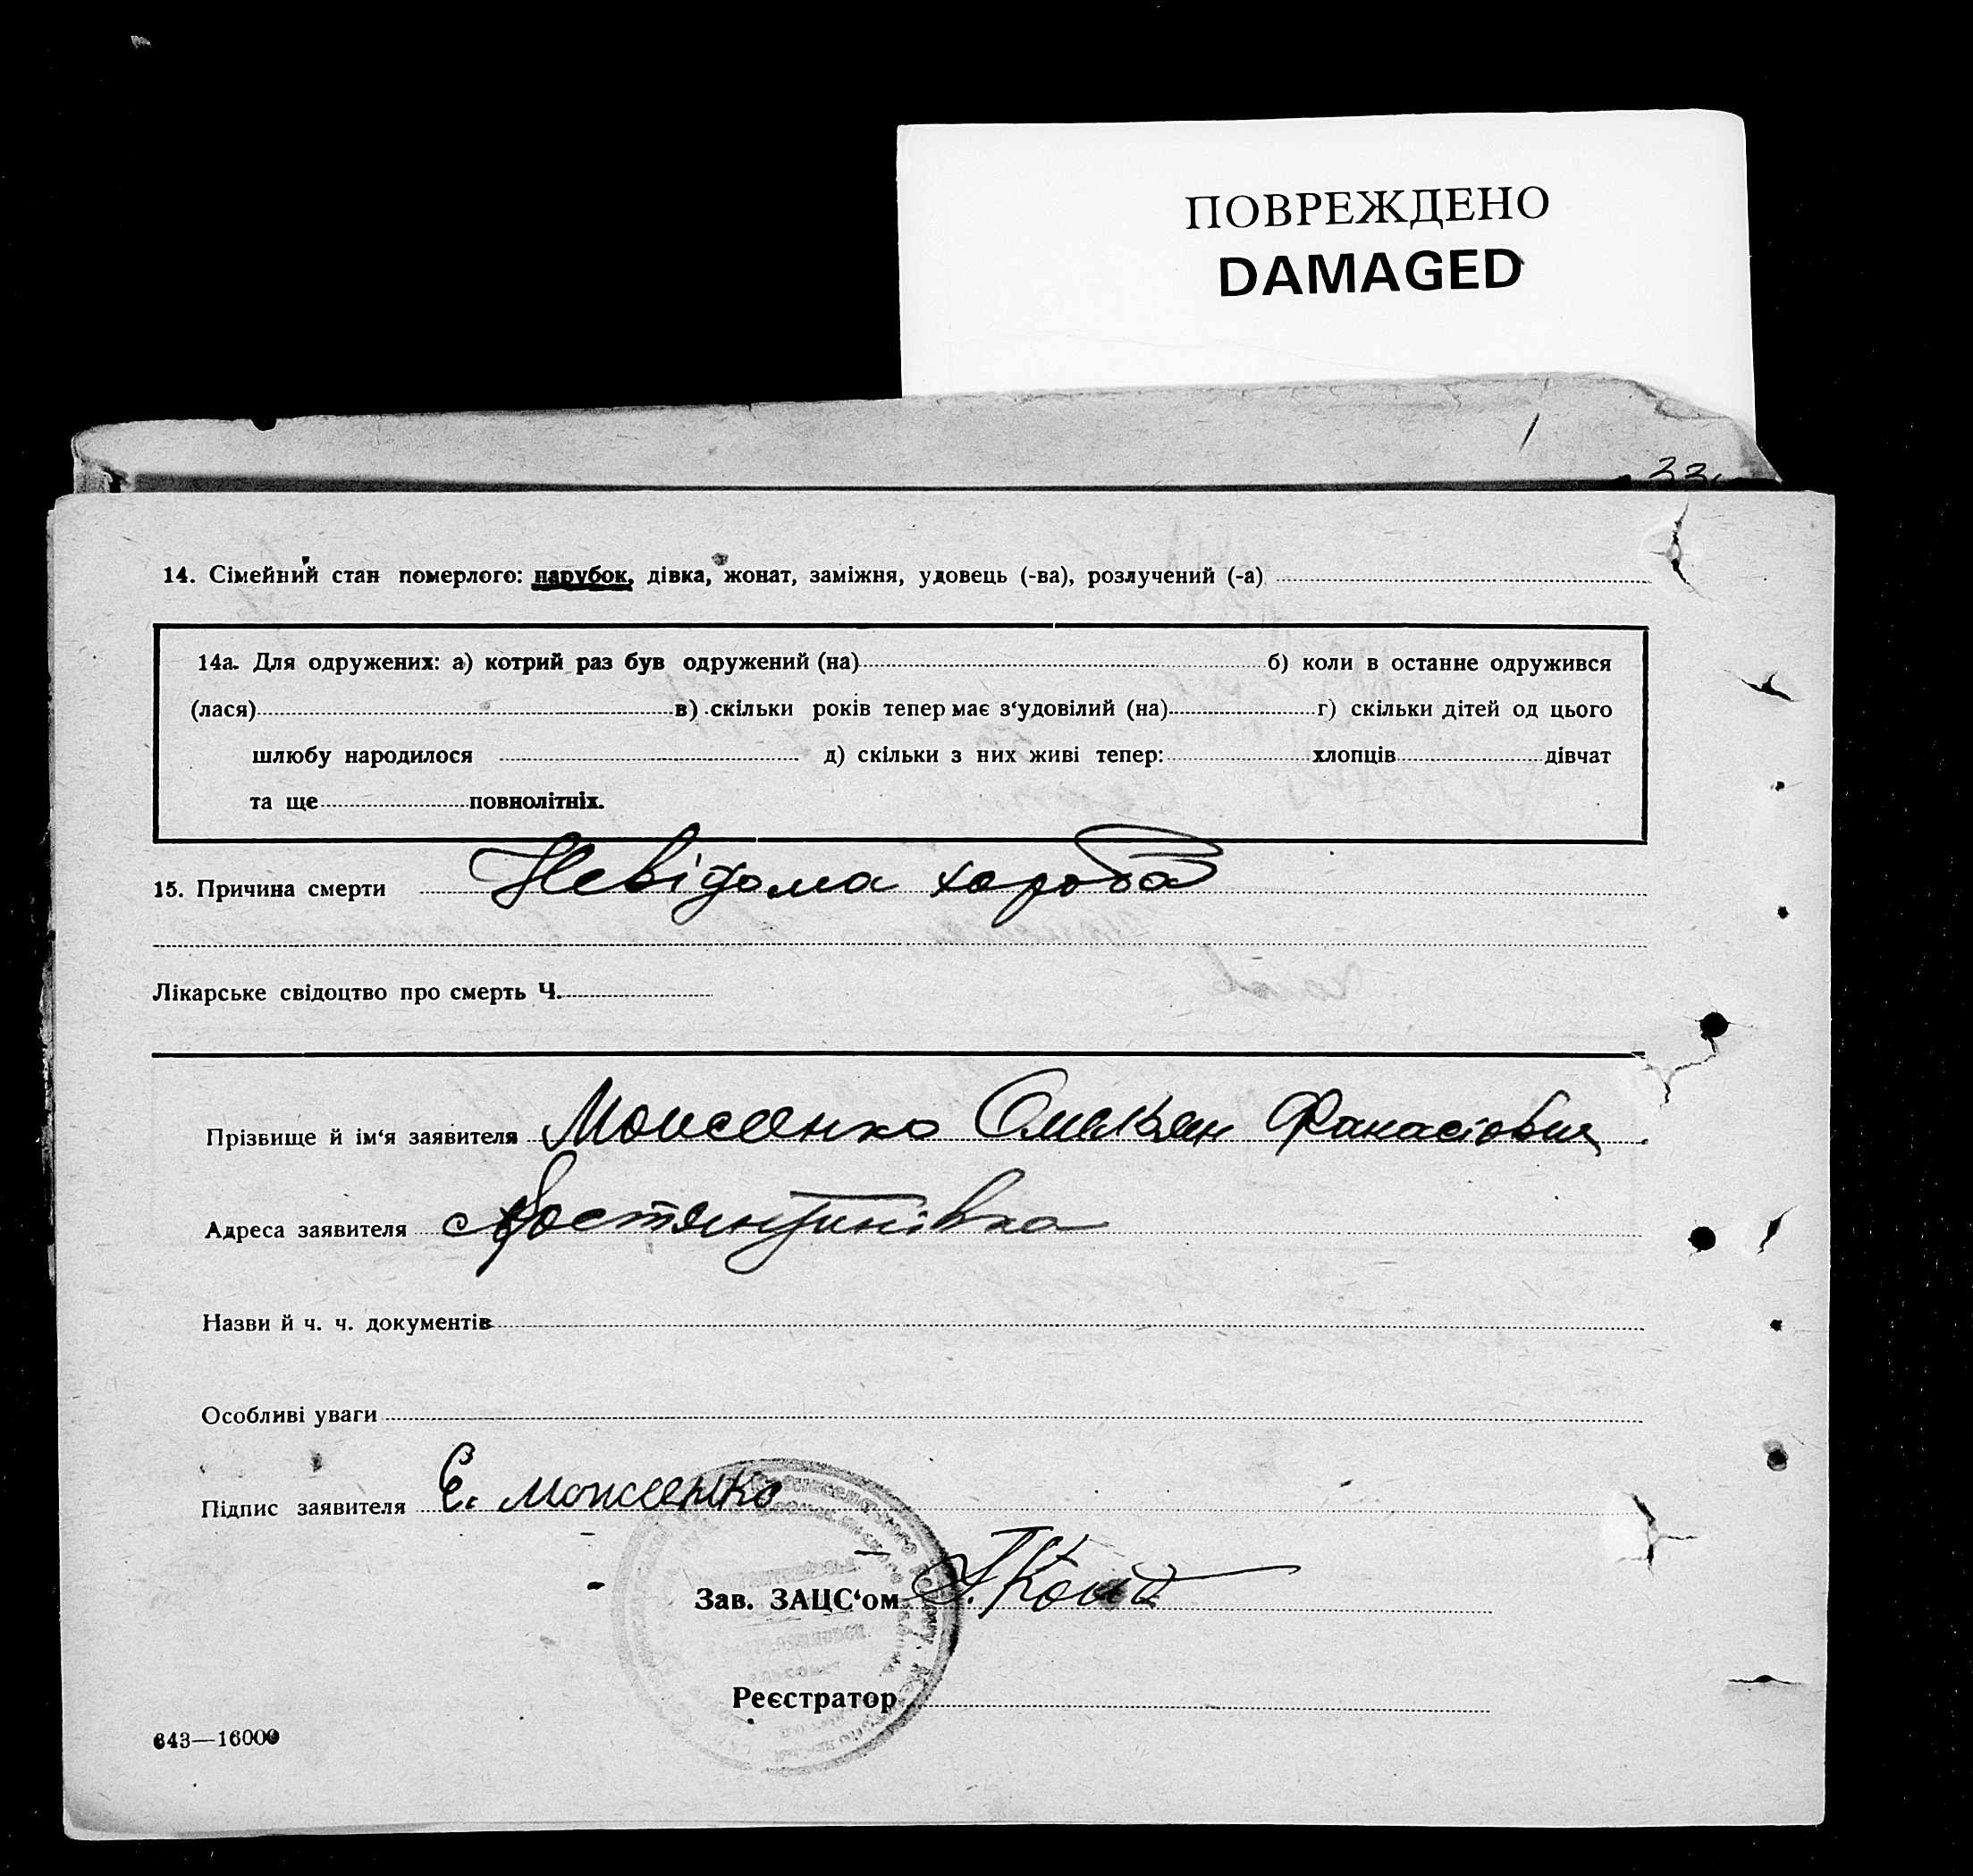 ПОВРЕЖДЕНО
DAMAGED
14. Сімейний стан померлого: парубок, дівка, жонат, заміжня, удовець (-ва), розлучений (-а)
14а. Для одружених: а) котрий раз був одружений (на) б) коли в останне одружився
(лася) в) скільки років тепер має з‘удовілий (на) г) скільки дітей од цього
шлюбу народилося д) скільки з них живі тепер: хлопців дівчат
та ще повнолітніх.
15. Причина смерти Невідома хороба
Лікарське свідоцтво про смерть Ч.
Прізвище й ім‘я заявителя Моисеенко Омелян Фанасіович
Адреса заявителя Костянтинівка
Назви й ч. ч. документів
Особливі уваги
Підпис заявителя Є. Моисеенко
Зав. ЗАЦС‘ом
Реєстратор
643—16000